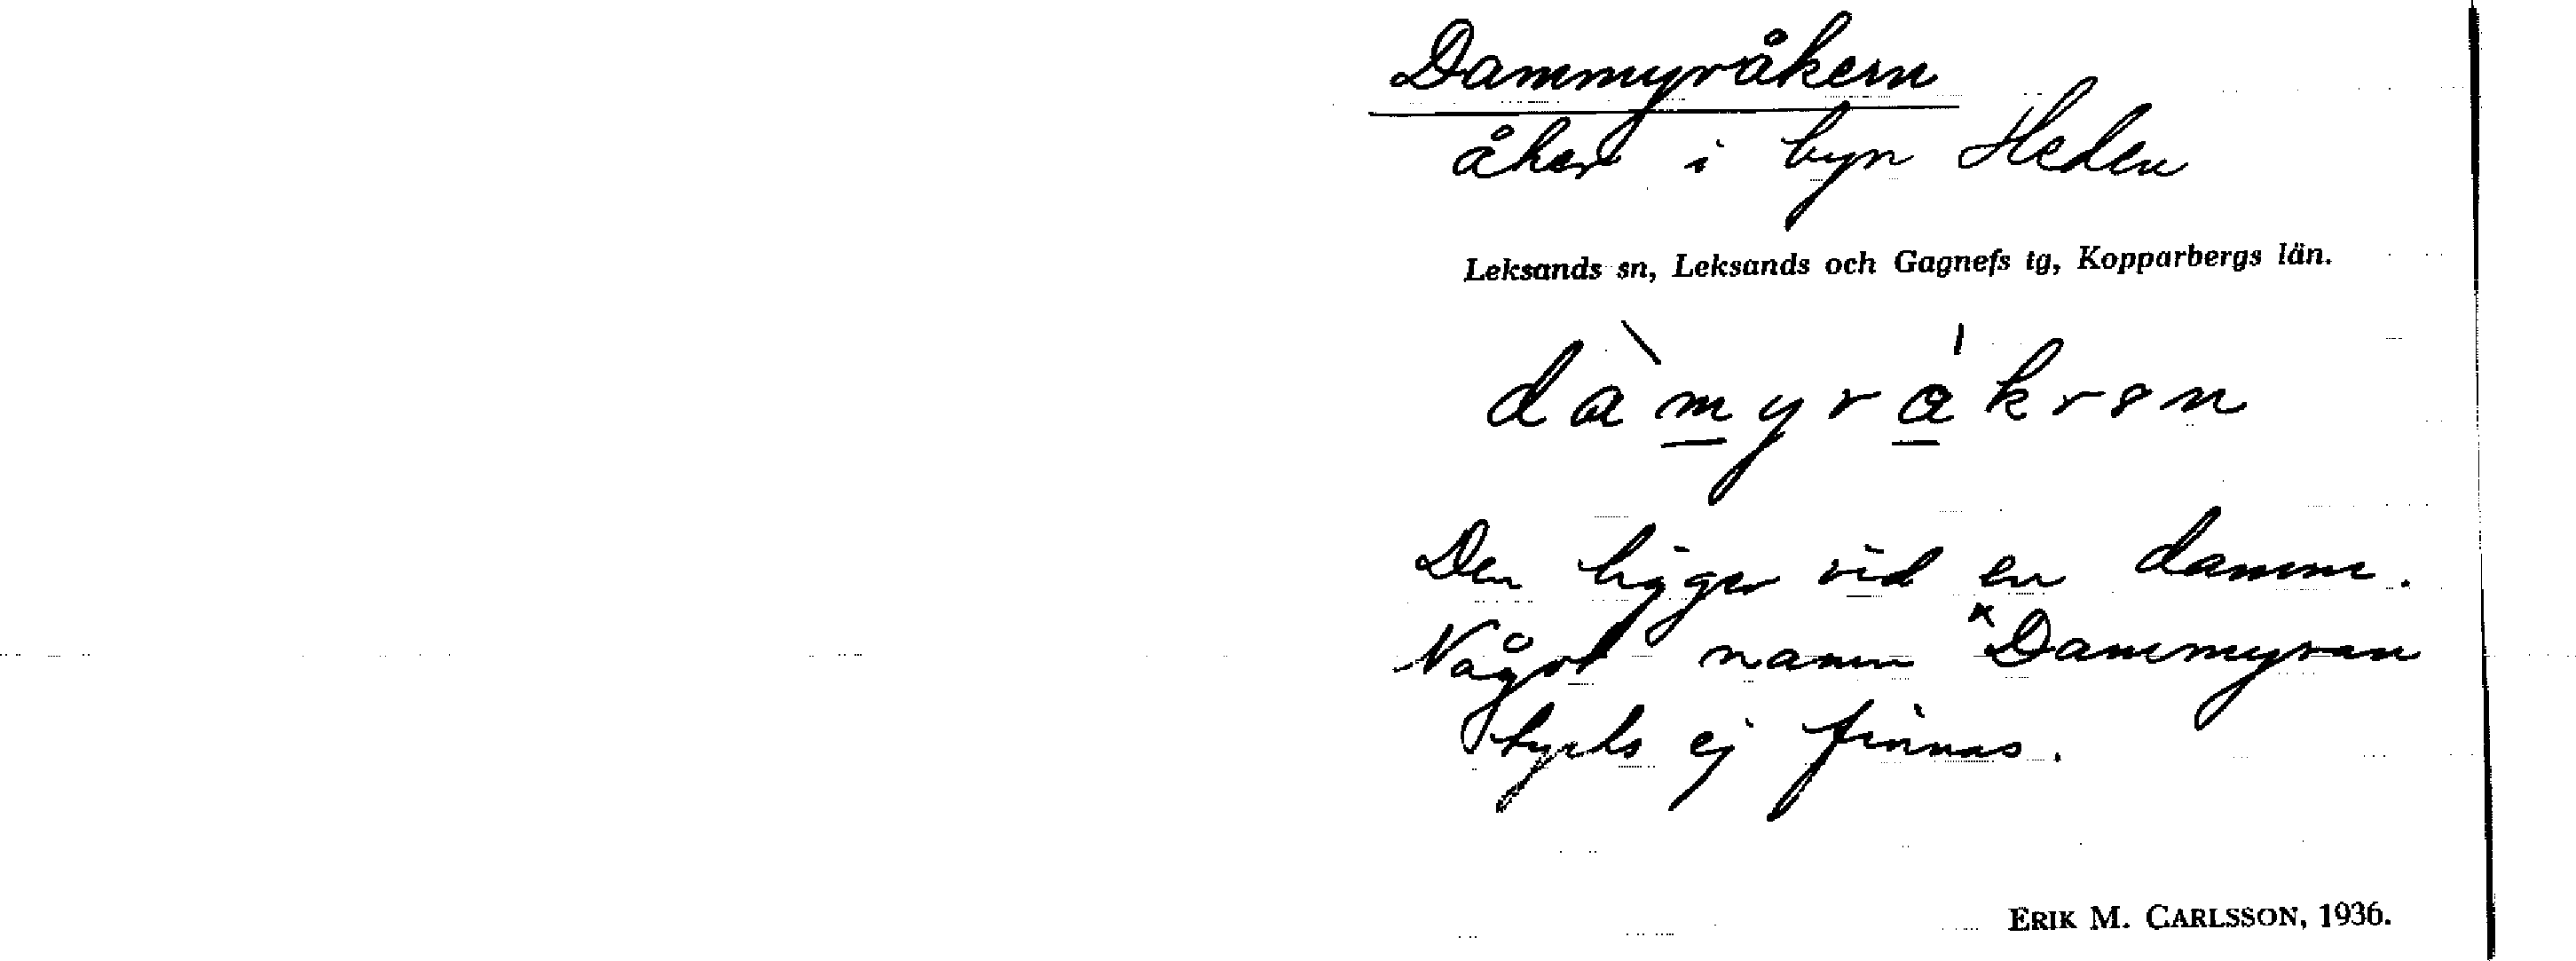 Dammyråkern
åker i byn Heden
Leksands sn, Leksands och Gagnefs tg, Kopparbergs län.
dàmyråkrən
Den ligger vid en damm.
Något namn *Dammyran
tycks ej finnas.
ERIK M. CARLSSON, 1936.